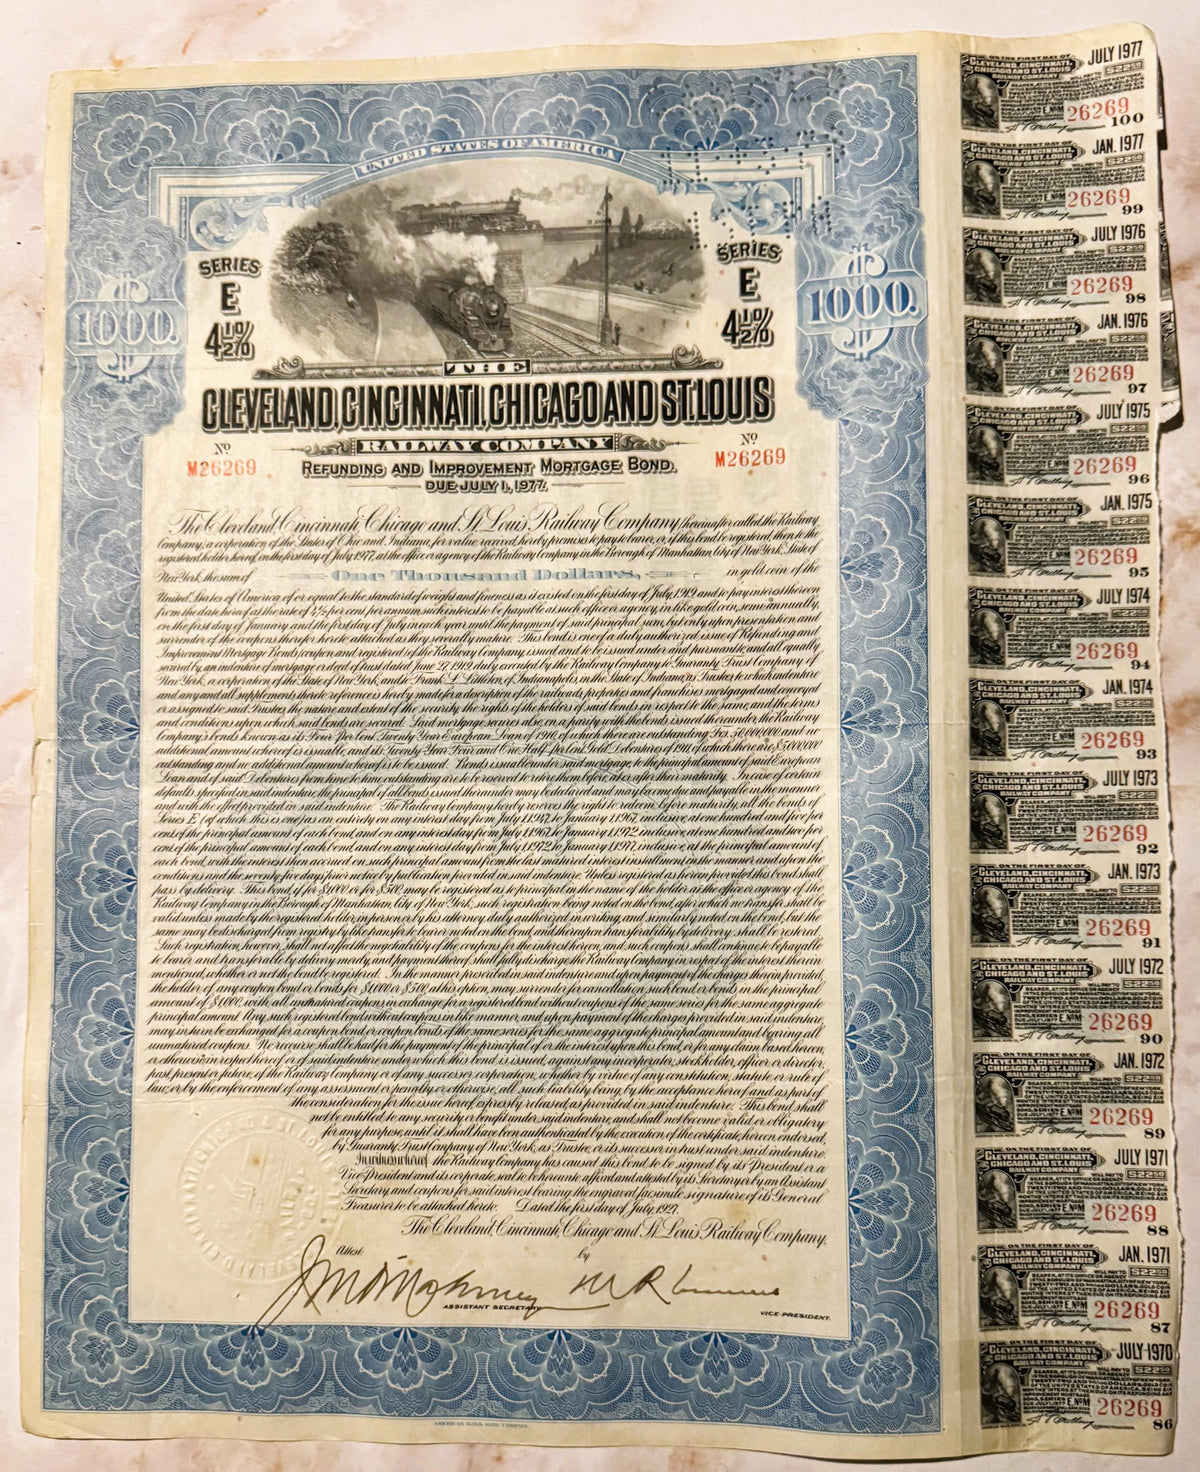 UNITED STATES OF AMERICA
SERIES
E
4½%
SERIES
E
4½%
$1000.
$1000.
THE
CLEVELAND, CINCINNATI, CHICAGO AND ST. LOUIS
RAILWAY COMPANY
Nº
M26269
Nº
M26269
REFUNDING AND IMPROVEMENT MORTGAGE BOND.
DUE JULY 1, 1977.
The Cleveland, Cincinnati, Chicago and St. Louis Railway Company (hereinafter called the Railway
Company), a corporation of the States of Ohio and Indiana, for value received, hereby promises to pay to bearer, or, if this bond be registered, then to the
registered holder hereof, on the first day of July, 1977, at the office or agency of the Railway Company in the Borough of Manhattan, City of New York, State of
New York, the sum of One Thousand Dollars, in gold coin of the
United States of America of or equal to the standard of weight and fineness as it existed on the first day of July, 1919, and to pay interest thereon
from the date hereof at the rate of 4½ per cent. per annum, such interest to be payable at such office or agency, in like gold coin, semi-annually,
on the first day of January and the first day of July in each year until the payment of said principal sum, but only upon presentation and
surrender of the coupons therefor hereto attached as they severally mature. This bond is one of a duly authorized issue of Refunding and
Improvement Mortgage Bonds, coupon and registered, of the Railway Company, issued and to be issued under and pursuant to, and all equally
secured by, an indenture of mortgage or deed of trust dated June 27, 1919, duly executed by the Railway Company to Guaranty Trust Company of
New York, a corporation of the State of New York, and Frank L. Littleton, of Indianapolis, in the State of Indiana, as Trustees, to which indenture
and any and all supplements thereto reference is hereby made for a description of the railroads, properties and franchises mortgaged and conveyed
or assigned to said Trustees, the nature and extent of the security, the rights of the holders of said bonds in respect to the same, and the terms
and conditions upon which said bonds are secured. Said mortgage secures also, on a parity with the bonds issued thereunder, the Railway
Company's bonds known as its Four Per Cent. Twenty Year European Loan of 1910, of which there are outstanding Frs. 50,000,000 and no
additional amount whereof is issuable, and its Twenty Year Four and One Half Per Cent. Gold Debentures of 1911, of which there are $5,000,000
outstanding and no additional amount whereof is to be issued. Bonds issuable under said mortgage to the principal amount of said European
Loan and of said Debentures from time to time outstanding are to be reserved to retire them before, at or after their maturity. In case of certain
defaults specified in said indenture, the principal of all bonds issued thereunder may be declared and may become due and payable in the manner
and with the effect provided in said indenture. The Railway Company hereby reserves the right to redeem, before maturity, all the bonds of
Series E (of which this is one) as an entirety on any interest day from July 1, 1947, to January 1, 1967, inclusive, at one hundred and five per
cent. of the principal amount of each bond, and on any interest day from July 1, 1967, to January 1, 1972, inclusive, at one hundred and two per
cent. of the principal amount of each bond, and on any interest day from July 1, 1972, to January 1, 1977, inclusive, at the principal amount of
each bond, with the interest then accrued on such principal amount from the last matured interest installment, in the manner and upon the
conditions and the seventy-five days prior notice by publication provided in said indenture. Unless registered as herein provided this bond shall
pass by delivery. This bond, if for $1,000 or for $500, may be registered as to principal in the name of the holder at the office or agency of the
Railway Company in the Borough of Manhattan, City of New York, such registration being noted on the bond, after which no transfer shall be
valid unless made by the registered holder, in person or by his attorney duly authorized in writing, and similarly noted on the bond, but the
same may be discharged from registry by like transfer to bearer noted on the bond, and thereupon transferability by delivery shall be restored.
Such registration, however, shall not affect the negotiability of the coupons for the interest hereon, and such coupons shall continue to be payable
to bearer and transferable by delivery merely, and payment thereof shall fully discharge the Railway Company in respect of the interest therein
mentioned, whether or not the bond be registered. In the manner prescribed in said indenture and upon payment of the charges therein provided,
the holder of any coupon bond or bonds for $1,000 or $500, at his option, may surrender for cancellation such bond or bonds in the principal
amount of $1,000, with all unmatured coupons, in exchange for a registered bond without coupons of the same series for the same aggregate
principal amount. Any such registered bond without coupons, in like manner, and upon payment of the charges provided in said indenture,
may in turn be exchanged for a coupon bond or coupon bonds of the same series for the same aggregate principal amount and bearing all
unmatured coupons. No recourse shall be had for the payment of the principal of or the interest upon this bond, or for any claim based thereon,
or otherwise in respect hereof or of said indenture under which this bond is issued, against any incorporator, stockholder, officer or director,
past, present or future, of the Railway Company or of any successor corporation, whether by virtue of any constitution, statute or rule of
law, or by the enforcement of any assessment or penalty or otherwise, all such liability being, by the acceptance hereof and as part of
the consideration for the issue hereof, expressly released, as provided in said indenture. This bond shall
not be entitled to any security or benefit under said indenture, and shall not become valid or obligatory
for any purpose, until it shall have been authenticated by the execution of the certificate, hereon endorsed,
by Guaranty Trust Company of New York, as Trustee, or its successor in trust under said indenture.
In witness whereof, the Railway Company has caused this bond to be signed by its President or a
Vice-President and its corporate seal to be hereunto affixed and attested by its Secretary or by an Assistant
Secretary and coupons for said interest bearing the engraved facsimile signature of its General
Treasurer to be attached hereto. Dated the first day of July, 1927.
The Cleveland, Cincinnati, Chicago and St. Louis Railway Company,
Attest:
by
ASSISTANT SECRETARY
VICE-PRESIDENT.
AMERICAN BANK NOTE COMPANY.
JULY 1977
CLEVELAND, CINCINNATI,
CHICAGO AND ST. LOUIS
$22.50
26269
100
JAN. 1977
CLEVELAND, CINCINNATI,
CHICAGO AND ST. LOUIS
RAILWAY COMPANY
$22.50
26269
99
JULY 1976
CLEVELAND, CINCINNATI,
CHICAGO AND ST. LOUIS
RAILWAY COMPANY
$22.50
26269
98
JAN. 1976
CLEVELAND, CINCINNATI,
CHICAGO AND ST. LOUIS
RAILWAY COMPANY
$22.50
26269
97
JULY 1975
CLEVELAND, CINCINNATI,
CHICAGO AND ST. LOUIS
RAILWAY COMPANY
$22.50
26269
96
JAN. 1975
CLEVELAND, CINCINNATI,
CHICAGO AND ST. LOUIS
RAILWAY COMPANY
$22.50
26269
95
JULY 1974
CLEVELAND, CINCINNATI,
CHICAGO AND ST. LOUIS
RAILWAY COMPANY
$22.50
26269
94
JAN. 1974
CLEVELAND, CINCINNATI,
CHICAGO AND ST. LOUIS
RAILWAY COMPANY
$22.50
26269
93
JULY 1973
CLEVELAND, CINCINNATI,
CHICAGO AND ST. LOUIS
RAILWAY COMPANY
$22.50
26269
92
JAN. 1973
ON THE FIRST DAY OF
CLEVELAND, CINCINNATI,
CHICAGO AND ST. LOUIS
RAILWAY COMPANY
$22.50
26269
91
JULY 1972
CLEVELAND, CINCINNATI,
CHICAGO AND ST. LOUIS
RAILWAY COMPANY
$22.50
26269
90
JAN. 1972
ON THE FIRST DAY OF
CLEVELAND, CINCINNATI,
CHICAGO AND ST. LOUIS
RAILWAY COMPANY
$22.50
26269
89
JULY 1971
CLEVELAND, CINCINNATI,
CHICAGO AND ST. LOUIS
RAILWAY COMPANY
$22.50
26269
88
JAN. 1971
ON THE FIRST DAY OF
CLEVELAND, CINCINNATI,
CHICAGO AND ST. LOUIS
RAILWAY COMPANY
$22.50
26269
87
JULY 1970
ON THE FIRST DAY OF
CLEVELAND, CINCINNATI,
CHICAGO AND ST. LOUIS
RAILWAY COMPANY
$22.50
26269
86